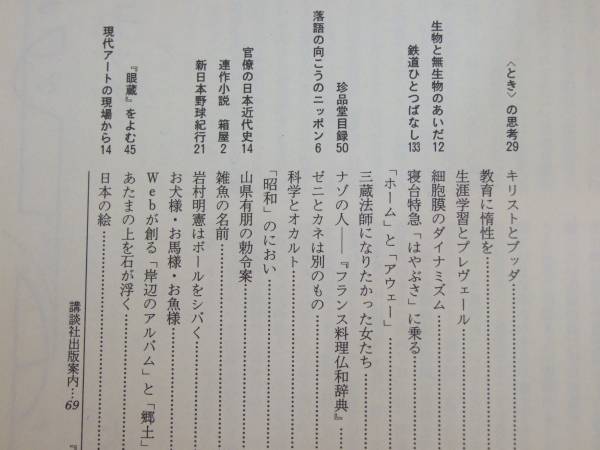 〈とき〉の思考29
キリストとブッダ
教育に惰性を
生涯学習とプレヴェール
生物と無生物のあいだ12
細胞膜のダイナミズム
鉄道ひとつばなし133
寝台特急「はやぶさ」に乗る
「ホーム」と「アウェー」
三蔵法師になりたかった女たち
珍品堂目録50
ナゾの人——『フランス料理仏和辞典』
落語の向こうのニッポン6
ゼニとカネは別のもの
科学とオカルト
「昭和」のにおい
官僚の日本近代史14
山県有朋の勅令案
連作小説 箱屋2
雑魚の名前
新日本野球紀行21
岩村明憲はボールをシバく
お犬様・お馬様・お魚様
Ｗｅｂが創る「岸辺のアルバム」と「郷土」
『眼蔵』をよむ45
あたまの上を石が浮く
現代アートの現場から14
日本の絵
講談社出版案内…69